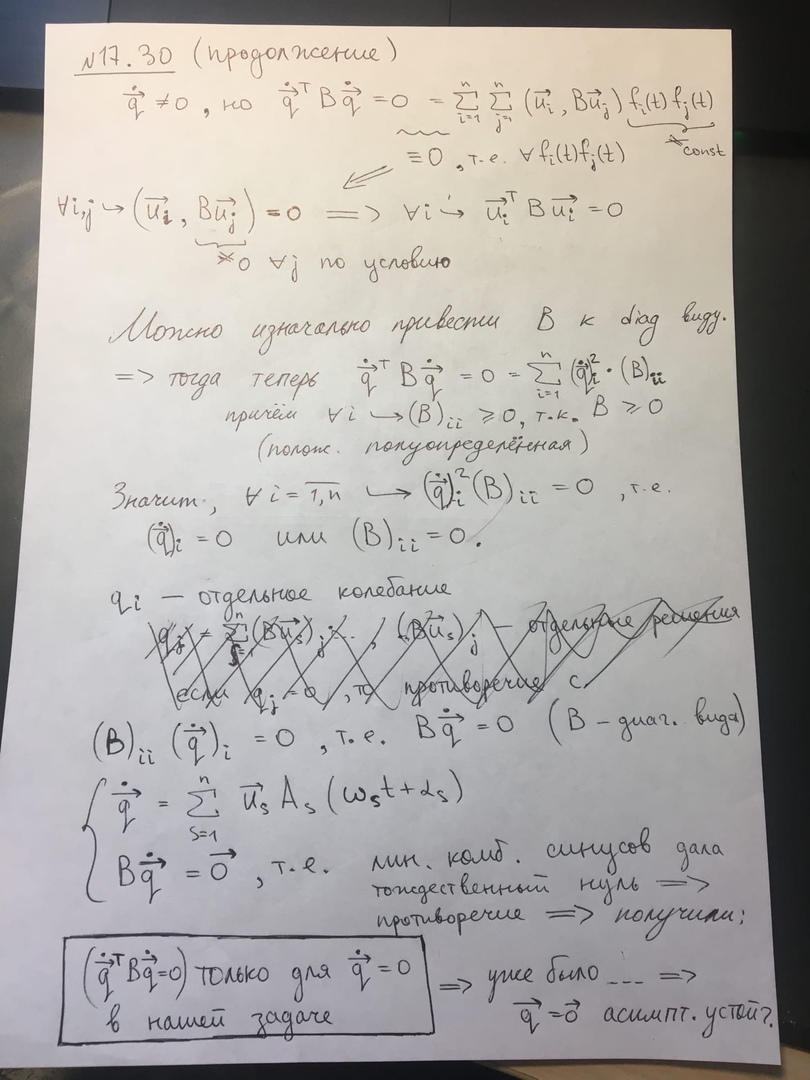 №17.30 (продолжение)
q̇⃗ ≠ 0, но q̇⃗ᵀ B q̇⃗ = 0 = Σⁿᵢ₌₁ Σⁿⱼ₌₁ (u⃗ᵢ, Bu⃗ⱼ) fᵢ(t) fⱼ(t)
≡ 0, т.е. ∀ fᵢ(t) fⱼ(t) ≠ const
∀i,j ↪ (u⃗ᵢ, Bu⃗ⱼ) = 0 => ∀i ↪ u⃗ᵢᵀ B u⃗ᵢ = 0
≠ 0 ∀j по условию
Можно изначально привести B к diag виду.
=> тогда теперь q̇⃗ᵀ B q̇⃗ = 0 = Σⁿᵢ₌₁ (q̇⃗)ᵢ² · (B)ᵢᵢ
причём ∀i ↪ (B)ᵢᵢ ⩾ 0, т.к. B ⩾ 0
(полож. полуопределённая)
Значит, ∀ i = 1,n ↪ (q̇⃗)ᵢ² (B)ᵢᵢ = 0, т.е.
(q̇⃗)ᵢ = 0 или (B)ᵢᵢ = 0.
qᵢ — отдельное колебание
отдельные решения
если qⱼ = 0, то противоречие с
(B)ᵢᵢ (q̇⃗)ᵢ = 0, т.е. Bq̇⃗ = 0 (B – диаг. вида)
q̇⃗ = Σⁿₛ₌₁ u⃗ₛ Aₛ (ωₛt + αₛ)
Bq̇⃗ = 0⃗, т.е. лин. комб. синусов дала
тождественный нуль =>
противоречие => получили:
(q̇⃗ᵀBq̇⃗=0) только для q̇⃗ = 0
в нашей задаче
=> уже было --- =>
q⃗ = 0⃗ асимпт. устойч.